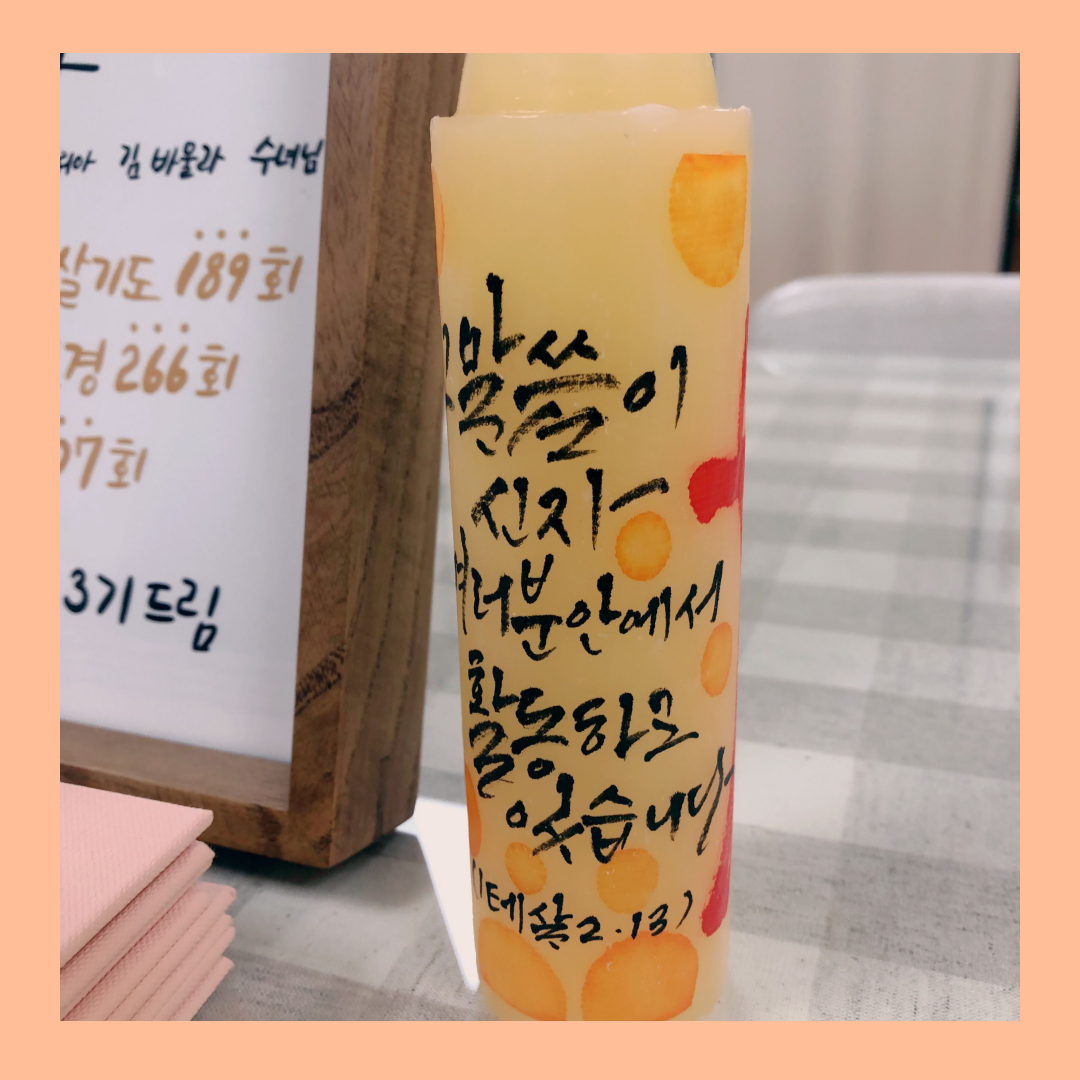 김 바울라 수녀님
살기도 189회
경 266회
07회
3기 드림
그 말씀이
신자
여러분 안에서
활동하고
있습니다
(1테살 2.13)